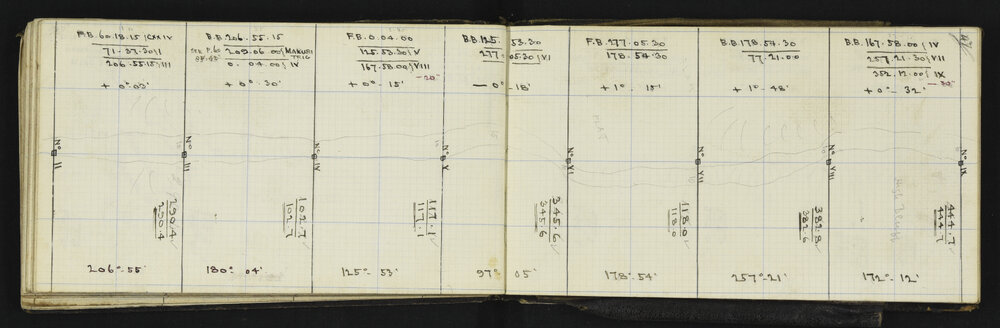 F.B. 60.18.15
71.37.30
206.55.15 III
+ 0°.03'
B.B. 206.55.15
203.06.00 MAKURI TRIG
0.04.00 IV
+ 0°. 30'
F.B. 0.04.00
125.53.30 V
167.58.00 VIII
-20"
+ 0° - 15'
B.B. 125.53.30
277.05.30 VI
- 0° - 18'
F.B. 277.05.30
178.54.30
+ 1° . 15'
B.B. 178.54.30
77.21.00
+ 1° - 48'
B.B. 167.58.00 IV
257.21.30 VII
352.12.00 IX
+ 0° - 32'
N° II
N° III
N° IV
N° V
N° VI
N° VII
N° VIII
N° IX
FLAT
290.4
290.4
102.7
102.7
117.1
117.1
345.6
345.6
118.0
118.0
382.8
382.6
444.7
444.7
206° - 55'
180° . 04'
125° - 53'
97° - 05'
178° - 54'
257° - 21'
172° - 12'